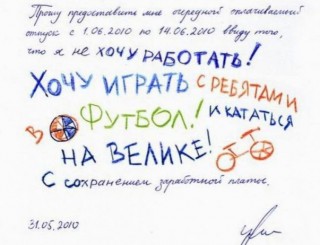 Прошу предоставить мне очередной оплачиваемый
отпуск с 1.06.2010 по 14.06.2010 ввиду того,
что я не хочу РАБОТАТЬ!
ХОЧУ ИГРАТЬ С РЕБЯТАМИ
В ФУТБОЛ! И КАТАТЬСЯ
НА ВЕЛИКЕ!
С сохранением заработной платы.
31.05.2010